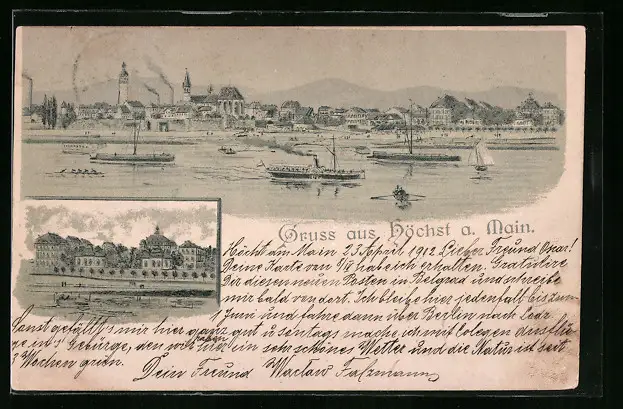 Gruss aus Höchst a. Main.
Höchst am Main 23 April 1912 Lieber Freund Oscar!
Deine Karte von habe ich erhalten. Gratuliere
Dir diesen neuen Posten in Belgrad und schreibe
mir bald von dort. Ich bleibe hier jedenfalls bis zum
1 Juni und fahre dann über Berlin nach
Sonst gefällt's mir hier ganz gut u. sontags mache ich mit Colegen
ge in's Gebürge, den wir haben ein sehr schönes Wetter und die Natur ist seit
3 Wochen grün. Dein Freund Waclaw